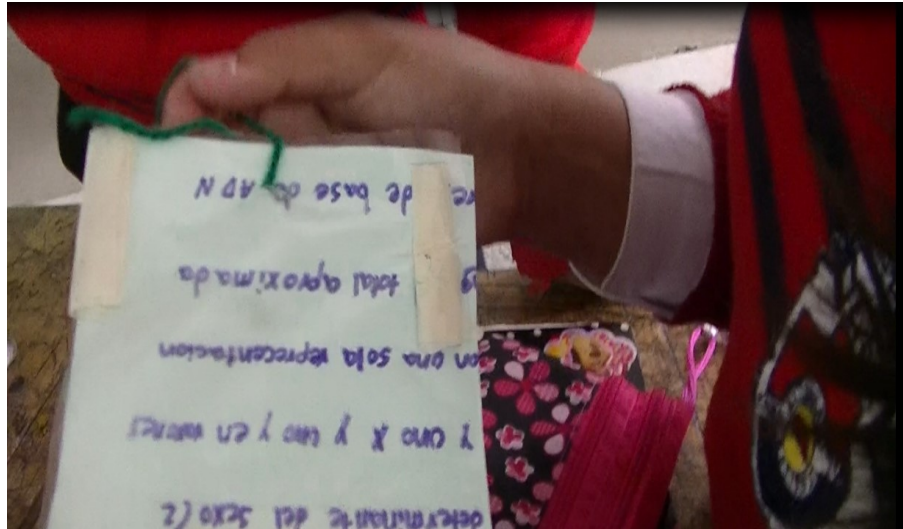 determinante del sexo (2
Y uno X y uno y en varones
con una sola reprecentacion
total aproximada
de base de ADN